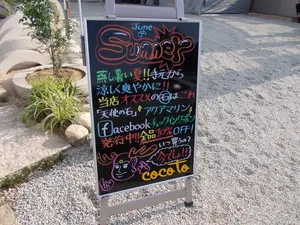 June
Summer
蒸し暑い夏!!手元から
涼しく爽やかに!!
当店オススメの石はこれ
「天使の石」アクアマリン
facebookチェックインクーポン
発行中!!全品10%OFF!
いつ買うの?
今でしょ!!
cocoto